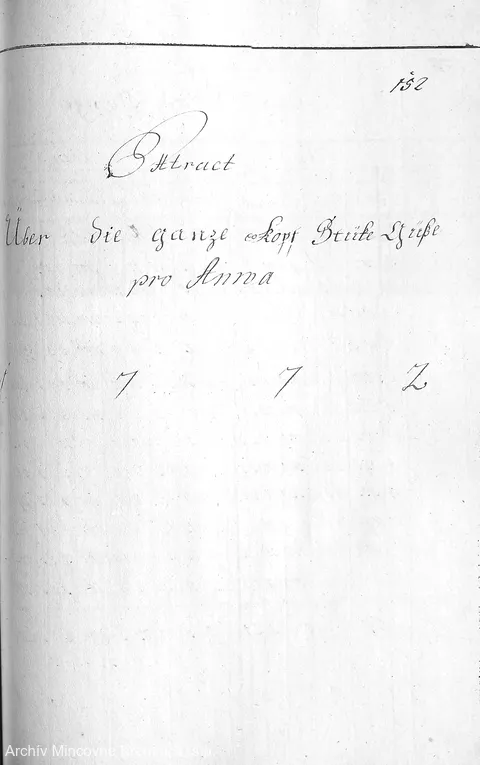 152
Extract
Über die ganze Kopf Stüke Güße
pro Anno
1 7 7 2
Archiv Mincovne